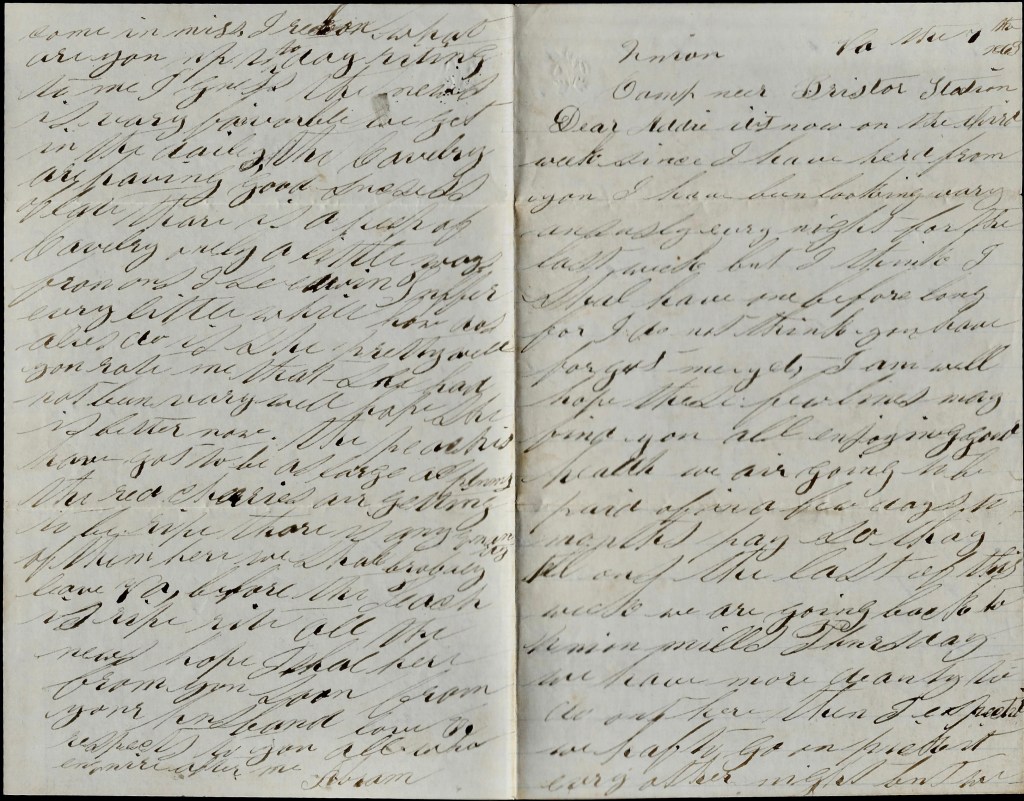 Union Va the 7 th
Camp neer Bristor Station
Dear Addie its now on the third
week since I have herd from
you I have been looking vary
anxiously evry night for the
last week but I think I
Shal have one before long
for I do not think you have
forgot me yet, I am well
hope these few lines may
find you all enjoying good
health we air going to be
paid of in a few days 2
months pay so thay
the last of this
week we are going back to
Union mills Thursday
we have more deauty to
do out here then I expected
we hafty go on picket
evry other night but we
some in miss. I reckon what
are you up to to day riting
to me I guess the news
is vary favorable we get
in the dailey, the Cavelry
are having good Sucsess
of late thare is a peck of
Cavelry only a little ways
from ous I see
evry little while how dos
do is she pretty well
you rote me that She had
not been vary well hope she
is better now. the peaches
have got to be as large as plums
the red cherries air getting
to be ripe thare is any
of them here we shal probely
leave Va, before the peach
is ripe rite all the
news hope I shal her
from you soon from
your husband love &
respects to you all who
enquire after me
Hiram